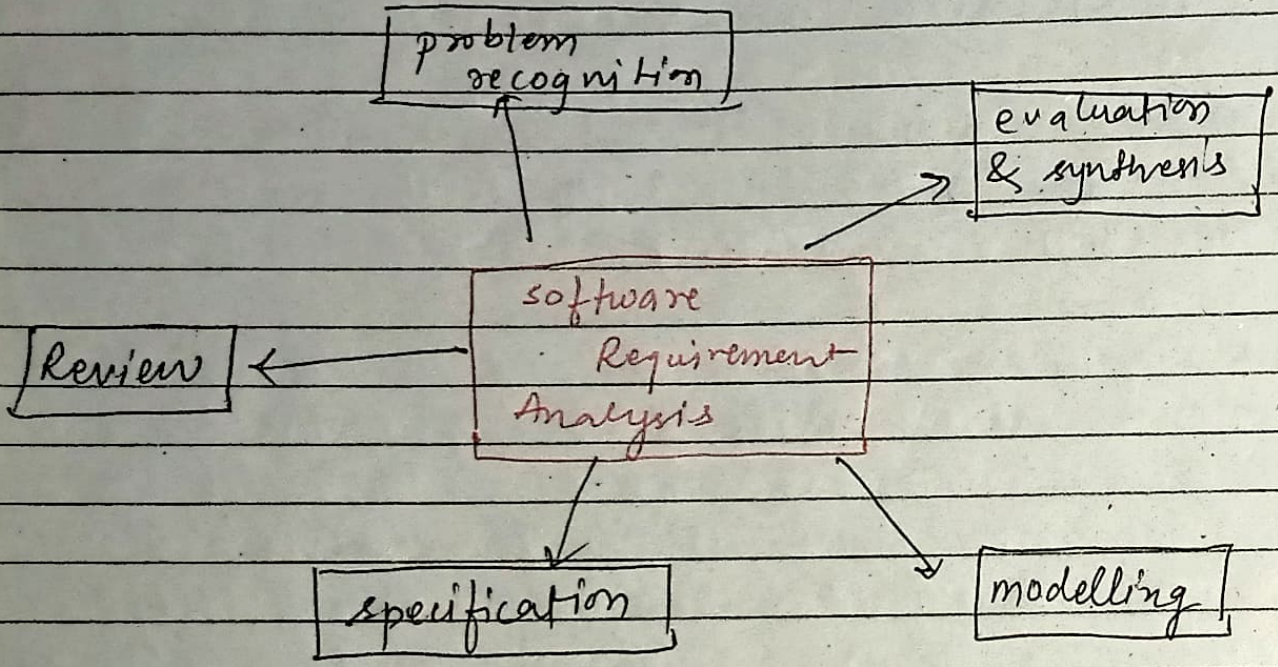 problem
recognition
evaluation
& synthesis
software
Requirement
Analysis
Review
specification
modelling